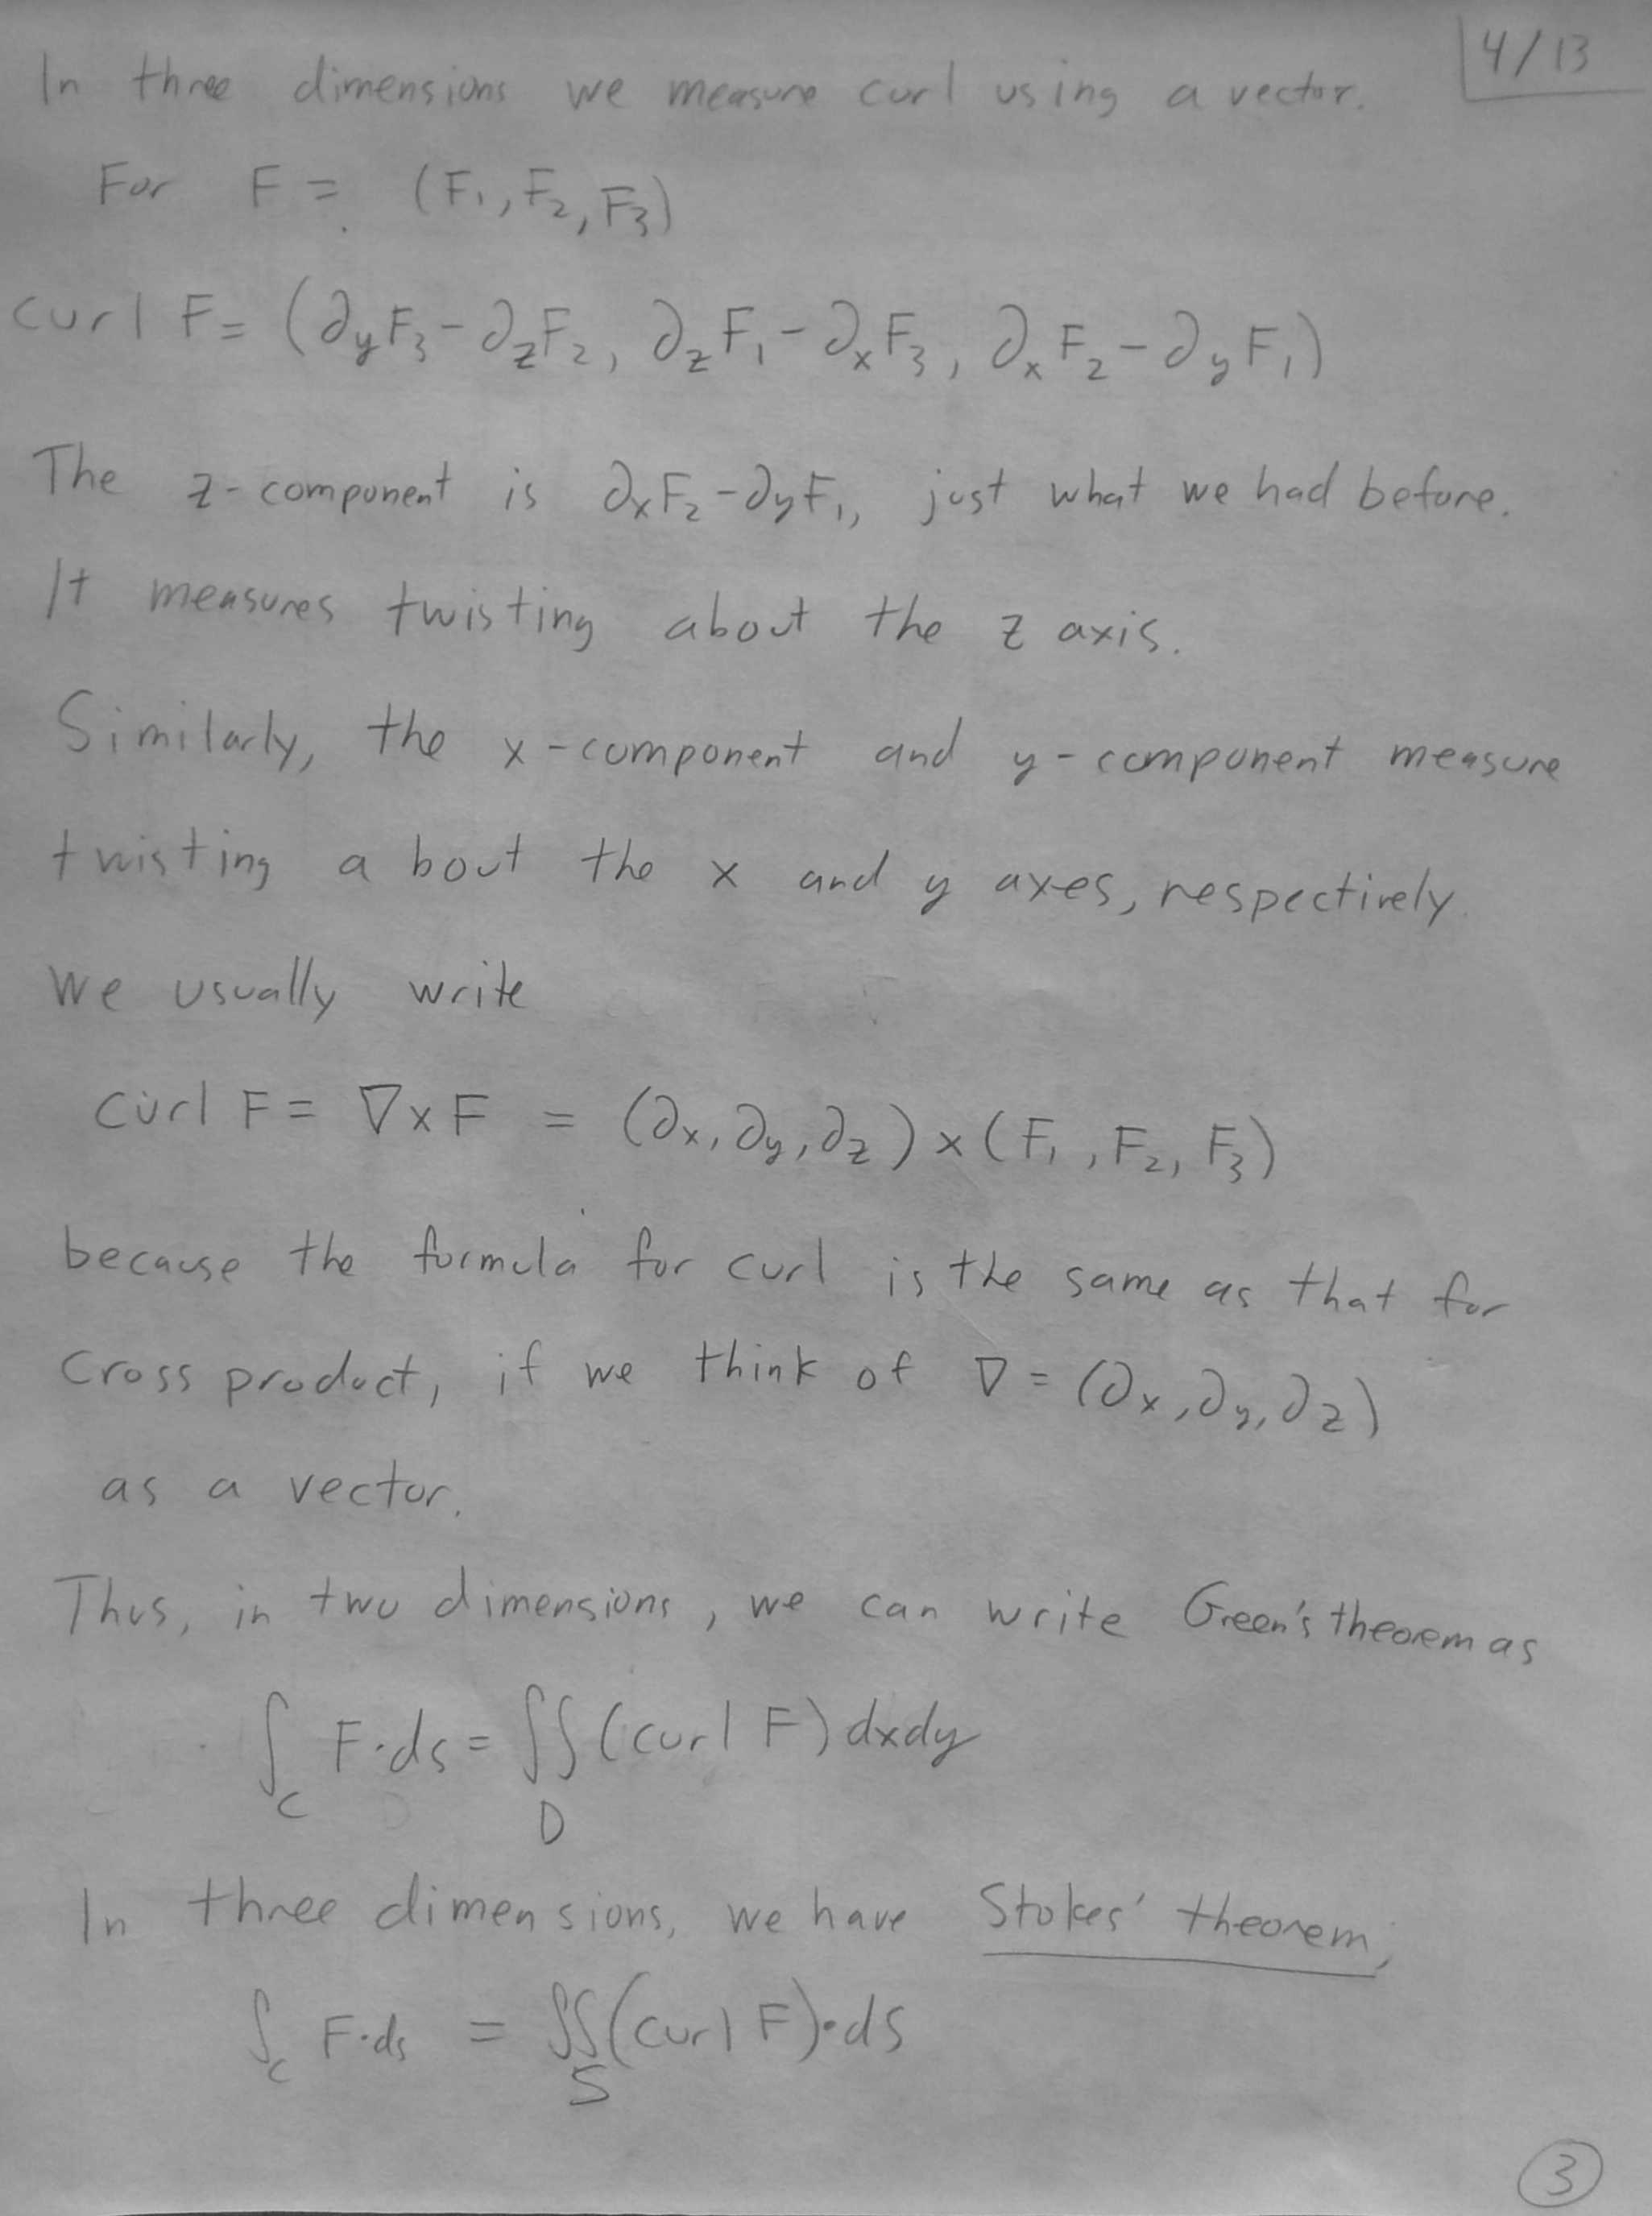 4/13
In three dimensions we measure curl using a vector.
For F = (F₁, F₂, F₃)
curl F = (∂yF₃ - ∂zF₂, ∂zF₁ - ∂xF₃, ∂xF₂ - ∂yF₁)
The z-component is ∂xF₂ - ∂yF₁, just what we had before.
It measures twisting about the z axis.
Similarly, the x-component and y-component measure
twisting about the x and y axes, respectively.
We usually write
curl F = ∇×F = (∂x, ∂y, ∂z) × (F₁, F₂, F₃)
because the formula for curl is the same as that for
cross product, if we think of ∇ = (∂x, ∂y, ∂z)
as a vector.
Thus, in two dimensions, we can write Green's theorem as
∫_C F·ds = ∬_D (curl F) dxdy
In three dimensions, we have Stokes' theorem,
∫_C F·ds = ∬_S (curl F)·dS
3